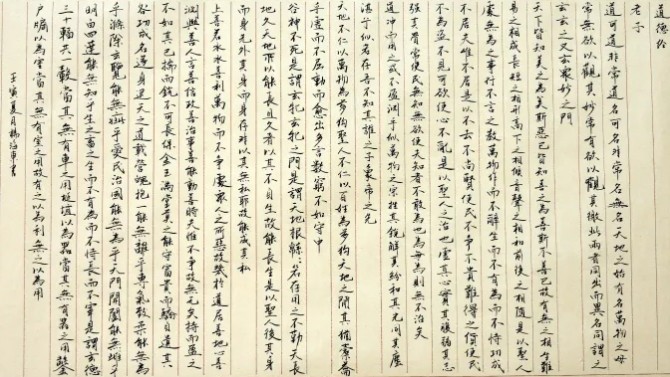 道德經
老子
道可道非常道名可名非常名無名天地之始有名萬物之母
常無欲以觀其妙常有欲以觀其徼此兩者同出而異名同謂之
玄玄之又玄衆妙之門
天下皆知美之為美斯惡已皆知善之為善斯不善已故有無之相生難
易之相成長短之相形高下之相傾音聲之相和前後之相隨是以聖人
處無為之事行不言之教萬物作而不辭生而不有為而不恃功成
不居夫唯不居是以不去不尚賢使民不爭不貴難得之貨使民
不為盜不見可欲使心不亂是以聖人之治也虛其心實其腹弱其志
強其骨常使民無知無欲使夫知者不敢為也為無為則無不治矣
道沖而用之或不盈淵乎似萬物之宗挫其銳解其紛和其光同其塵
湛兮似若存吾不知其誰之子象帝之先
天地不仁以萬物為芻狗聖人不仁以百姓為芻狗天地之間其猶橐籥
乎虛而不屈動而愈出多言數窮不如守中
谷神不死是謂玄牝玄牝之門是謂天地根綿綿若存用之不勤天長
地久天地所以能長且久者以其不自生故能長生是以聖人後其身
而身先外其身而身存非以其無私耶故能成其私
上善若水水善利萬物而不爭處衆人之所惡故幾於道居善地心善
淵與善人言善信政善治事善能動善時夫惟不爭故無尤矣持而盈之
不如其已揣而銳之不可長保金玉滿堂莫之能守富貴而驕自遺其
咎功成名遂身退天之道載營魄抱一能無離乎專氣致柔能無為
乎滌除玄覽能無疵乎愛民治國能無為乎天門開闔能無雌乎
明白四達能無知乎生之畜之生而不有為而不恃長而不宰是謂玄德
三十輻共一轂當其無有車之用埏埴以為器當其無有器之用鑿
戶牖以為室當其無有室之用故有之以為利無之以為用
壬寅夏月楊海東書